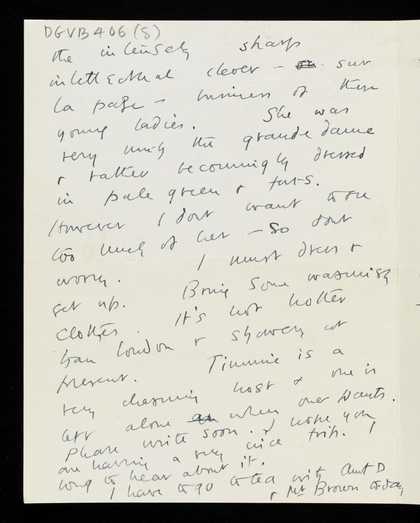 DGVB406(S)
the intensely sharp
intellectual clever – sur
la page – business of these
young ladies. She was
very much the grande dame
& rather becomingly dressed
in pale green & furs.
However I dont want to see
too much of her – so dont
worry. I must dress &
get up. Bring some warmish
clothes. It's not hotter
than London & showery at
present. Timmie is a
very charming host & one is
left alone when one wants.
Please write soon. I hope you
are having a very nice trip. I
long to hear about it.
I have to go to tea with Aunt D
& Mr Brown today